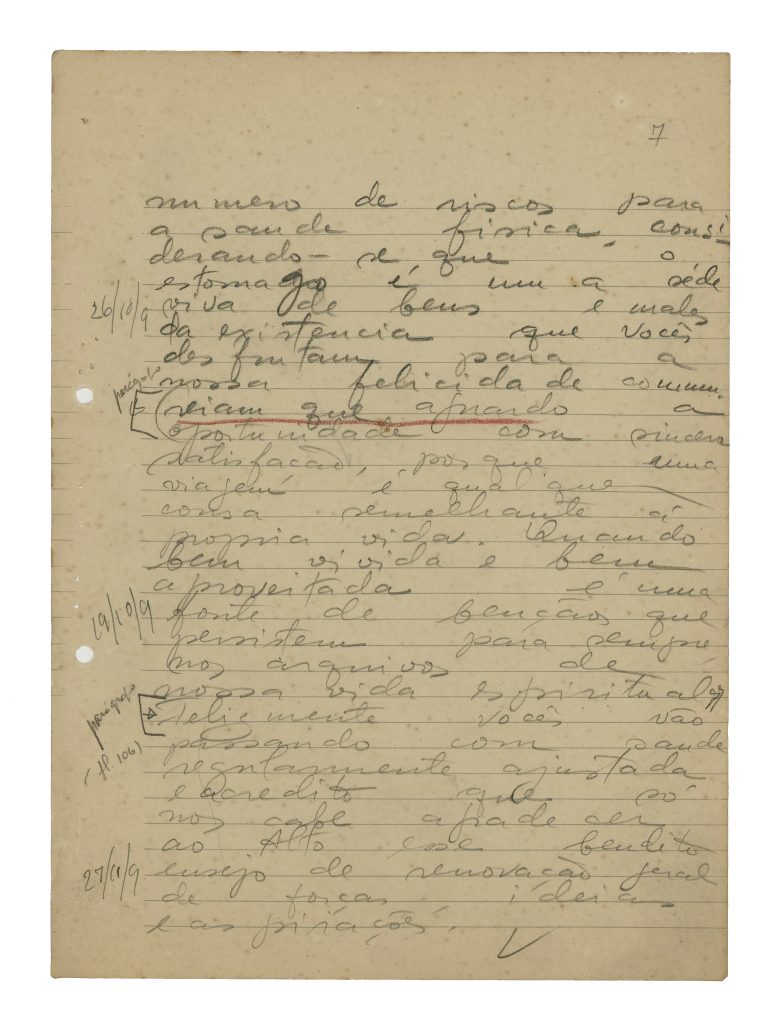 7
numero de riscos para
a saude fisica, consi-
derando-se que o
estomago é uma séde
26/10/9 viva de bens e males
da existencia que vocês
desfrutam para a
nossa felicidade commum.
parágrafo
(viam que aguardo a
oportunidade com sincera
satisfação, porque uma
viagem é qualque
cousa semelhante á
propria vida. Quando
bem vivida e bem
aproveitada é uma
19/10/9 fonte de bençãos que
persistem para sempre
nos arquivos de
nossa vida espiritual
parágrafo
Felizmente vocês vão
passando com saude
(fl. 106)
regularmente ajustada
e acredito que só
nos cabe agradecer
ao Alto esse bendito
27/11/9 ensejo de renovação geral
de forças, ideias
e aspirações.